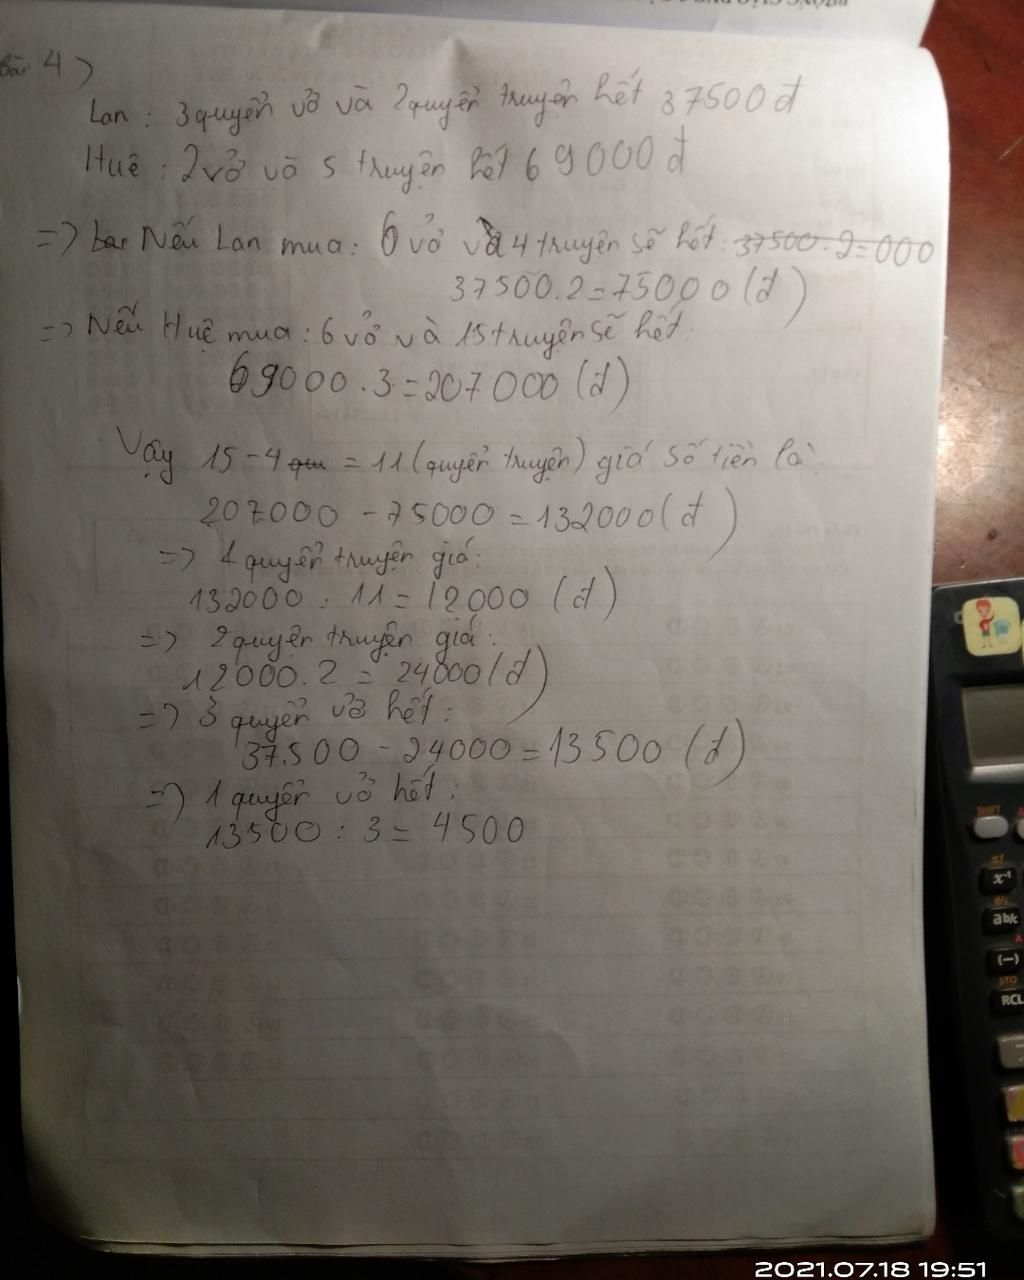 Bài 4)
Lan : 3 quyển vở và 2 quyển truyện hết 37500 đ
Huệ : 2 vở và 5 truyện hết 69000 đ
=> Nếu Lan mua : 6 vở và 4 truyện sẽ hết : 37500 . 2 = 000
37500.2 = 75000 (đ)
=> Nếu Huệ mua : 6 vở và 15 truyện sẽ hết :
69000 . 3 = 207000 (đ)
Vậy 15 - 4 = 11 (quyển truyện) giá số tiền là :
207000 - 75000 = 132000 (đ)
=> 1 quyển truyện giá :
132000 : 11 = 12000 (đ)
=> 2 quyện truyện giá :
12000.2 = 24000 (đ)
=> 3 quyển vở hết :
37500 - 24000 = 13500 (đ)
=> 1 quyển vở hết :
13500 : 3 = 4500
SHIFT
x!
x⁻¹
d/c
ab/c
A
(-)
STO
RCL
7
2021.07.18 19:51